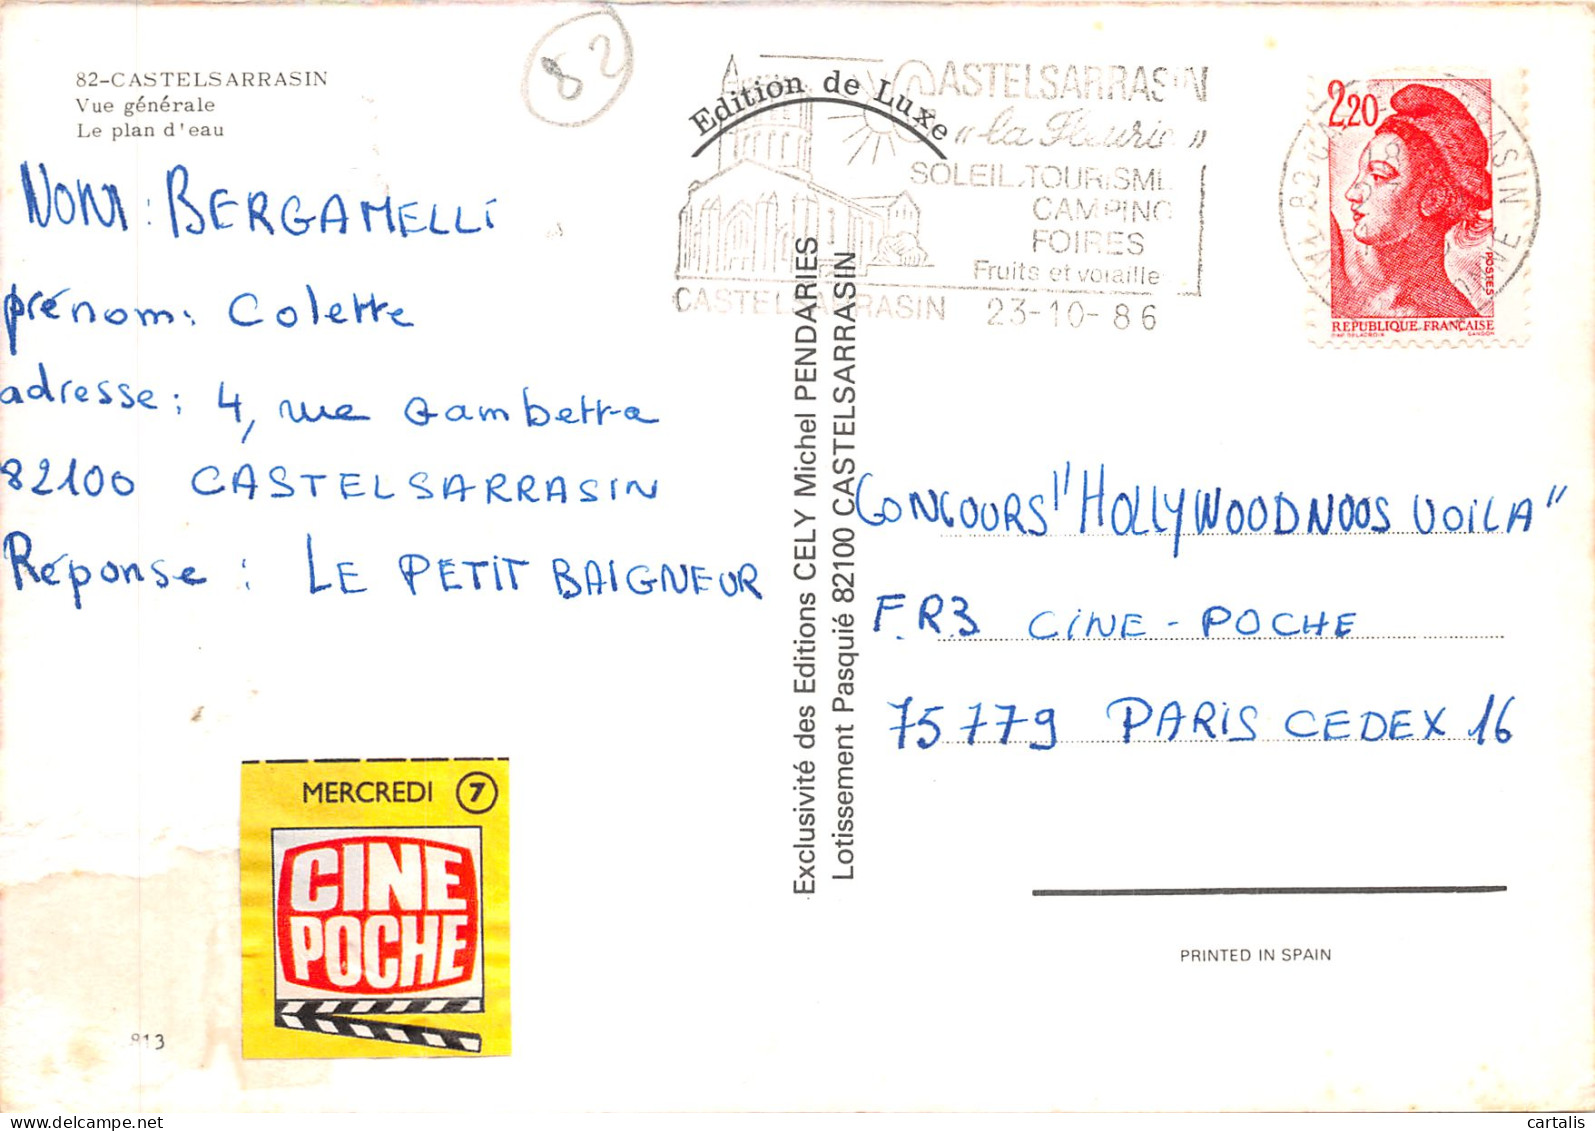 82-CASTELSARRASIN
Vue générale
Le plan d'eau
82
Edition de Luxe
CASTELSARRASIN
"la fleurie"
SOLEIL.TOURISME
CAMPING
FOIRES
Fruits et volaille
CASTELSARRASIN 23-10-86
2,20
POSTES
REPUBLIQUE FRANÇAISE
D'AP. DELACROIX GANDON
NOM : BERGAMELLI
prénom: Colette
adresse: 4, rue Gambetta
82100 CASTELSARRASIN
Réponse : LE PETIT BAIGNEUR
Exclusivité des Editions CELY Michel PENDARIES
Lotissement Pasquié 82100 CASTELSARRASIN
CONCOURS "HOLLYWOODNOOS VOILA"
F.R3 CINE-POCHE
75779 PARIS CEDEX 16
MERCREDI 7
CINE
POCHE
PRINTED IN SPAIN
813
cartalis